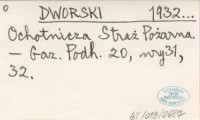 DWORSKI 1932...
Ochotnicza Straż Pożarna.
— Gaz. Podh. 20, nry31,
32.